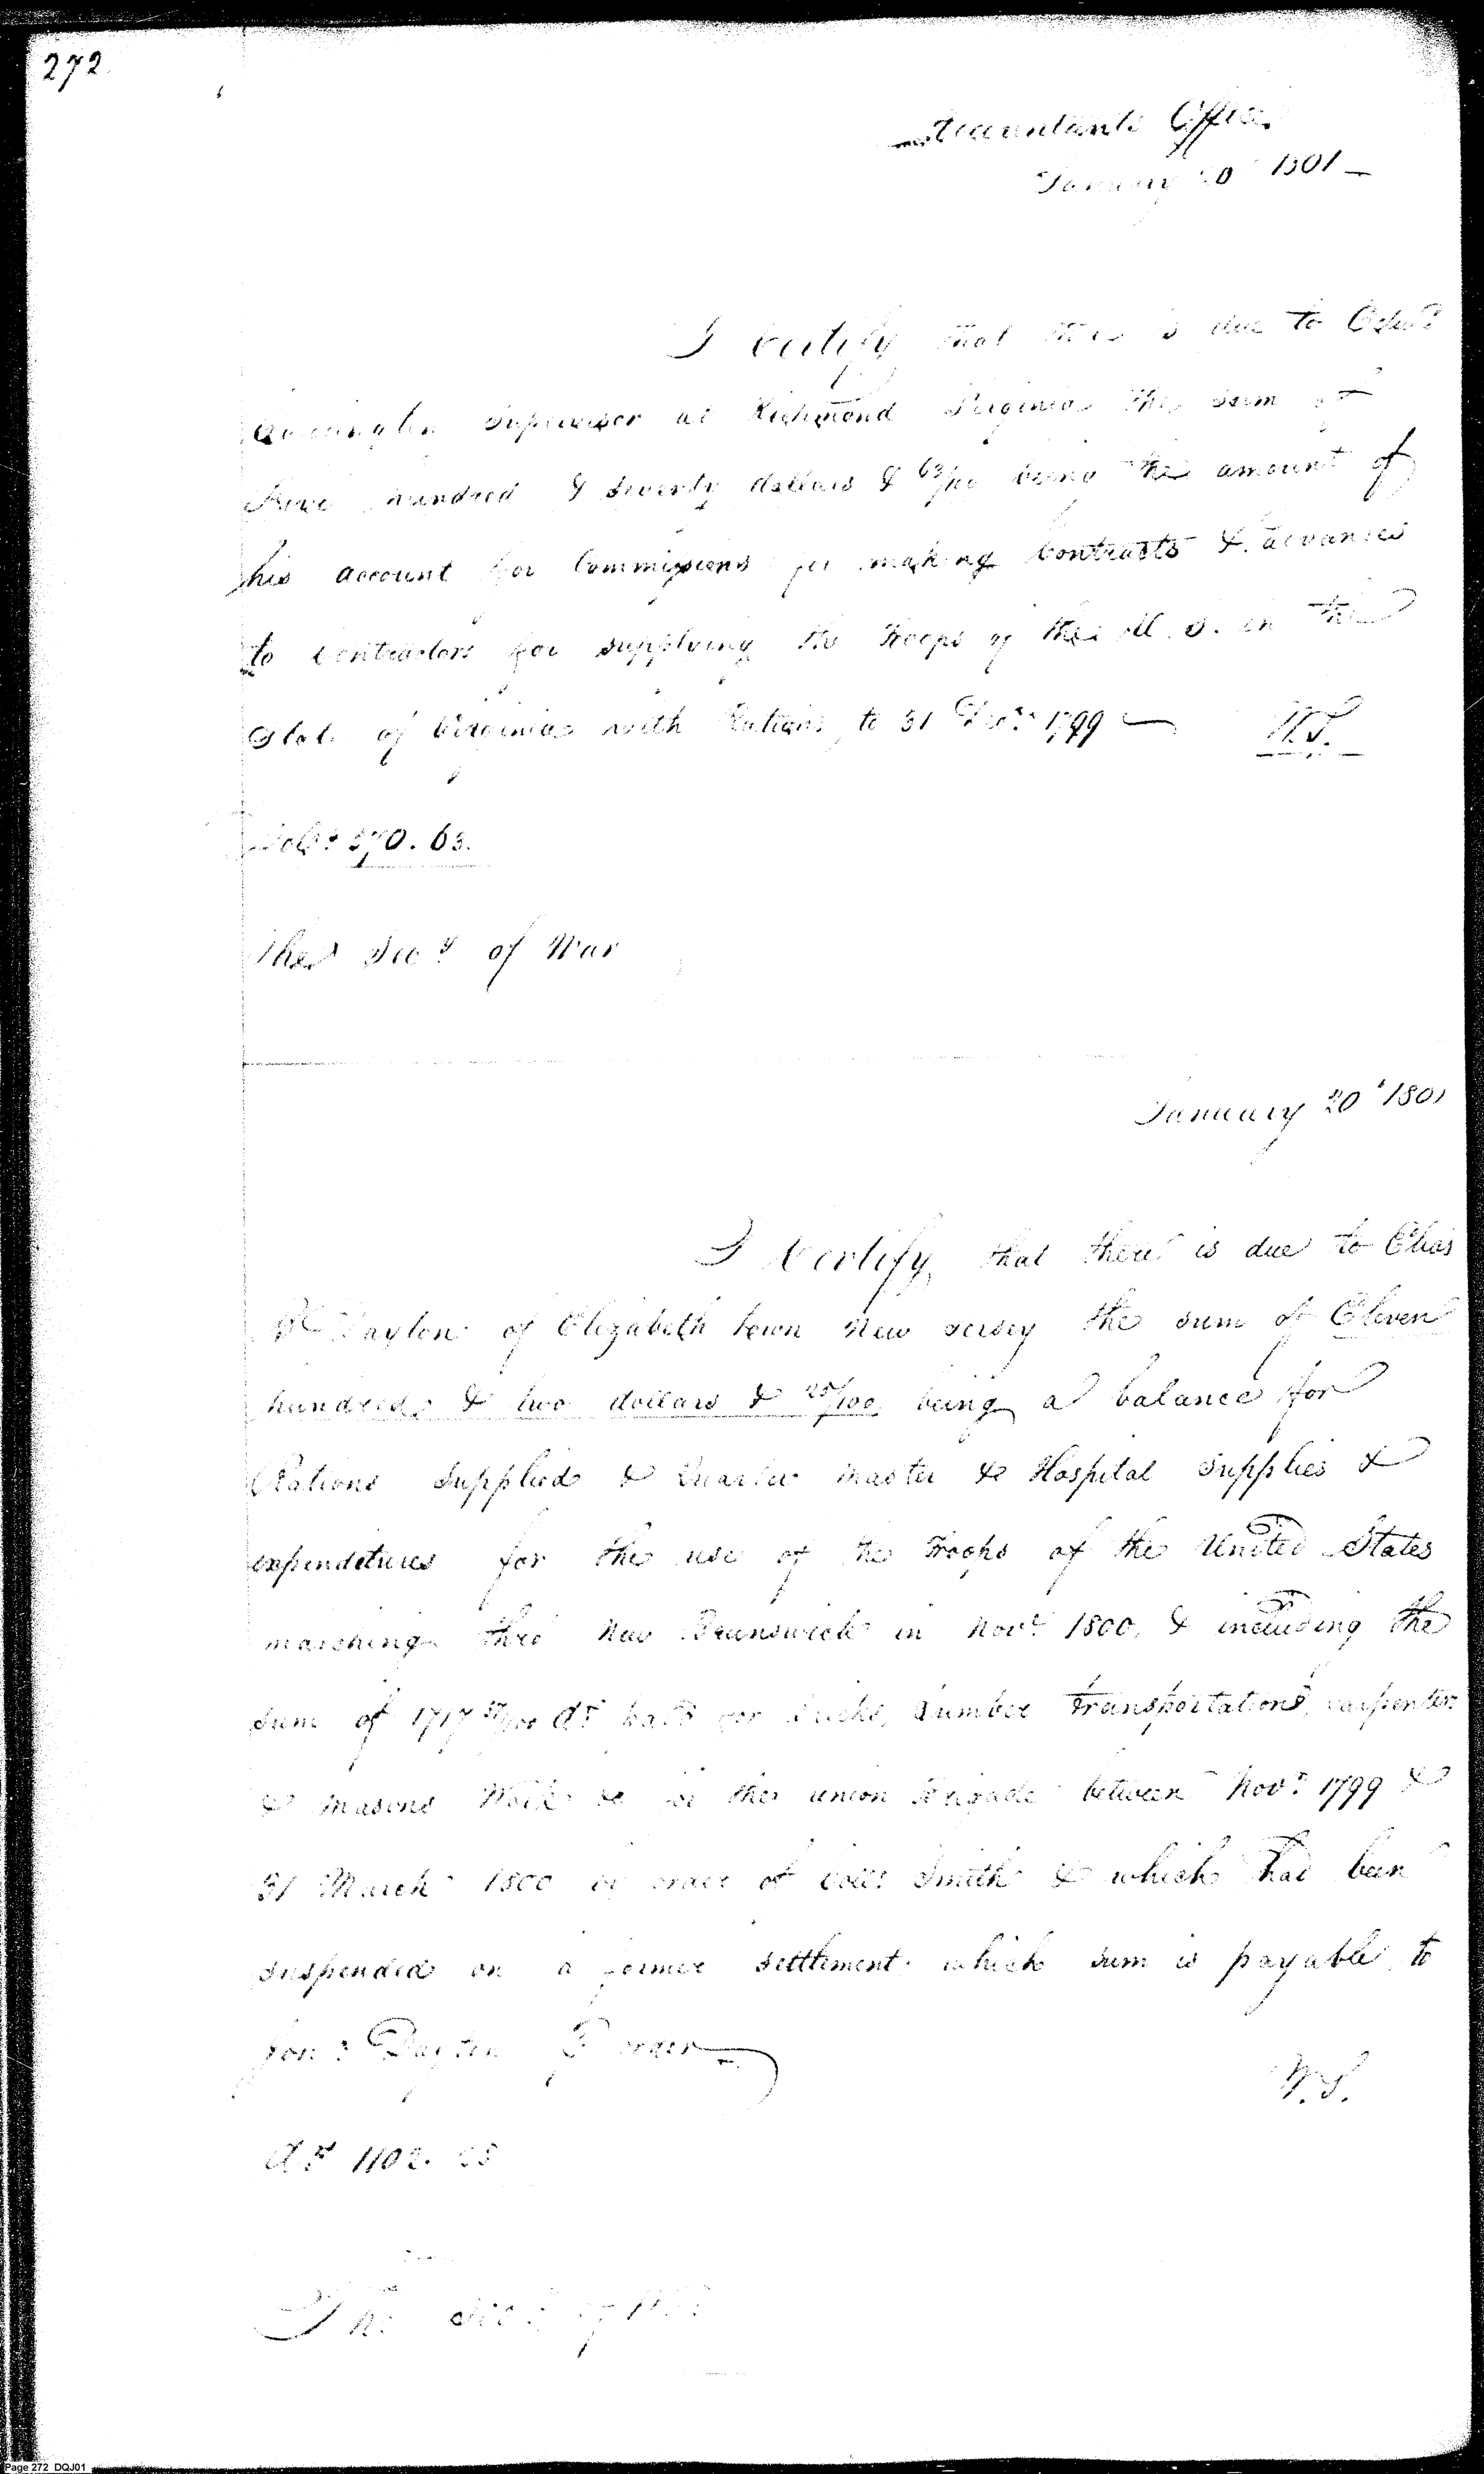 272
Accountants Office
January 20 1801 –
I Certify that there is due to Edwd
Carrington Supervisor at Richmond Virginia the sum of
five hundred & seventy dollars & 63/100 being the amount of
his account for Commissions for making Contracts & advances
to Contractors for supplying the Troops of the U. S. in the
State of Virginia with Rations to 31 Decr 1799 –
W.S.
Dolls 570.63.
The Secy of War
January 20 1801
I Certify, that there is due to Elias
B Dayton of Elizabeth town New Jersey the sum of Eleven
hundred & two dollars & 25/100 being a balance for
Rations Supplied & Quarter master & Hospital supplies &
expenditures for the use of the Troops of the United States
marching thro New Brunswick in Novr 1800, & including the
sum of 1717 /100 Ds for Lumber transportation, carpenters
& masons Work the union Brigade between Novr 1799 &
31 March 1800 order of Coll Smith & which had been
suspended on a former settlement which sum is payable to
Jona Dayton order
W.S.
Ds 1102.25
The Secy of War
Page 272 DQJ01